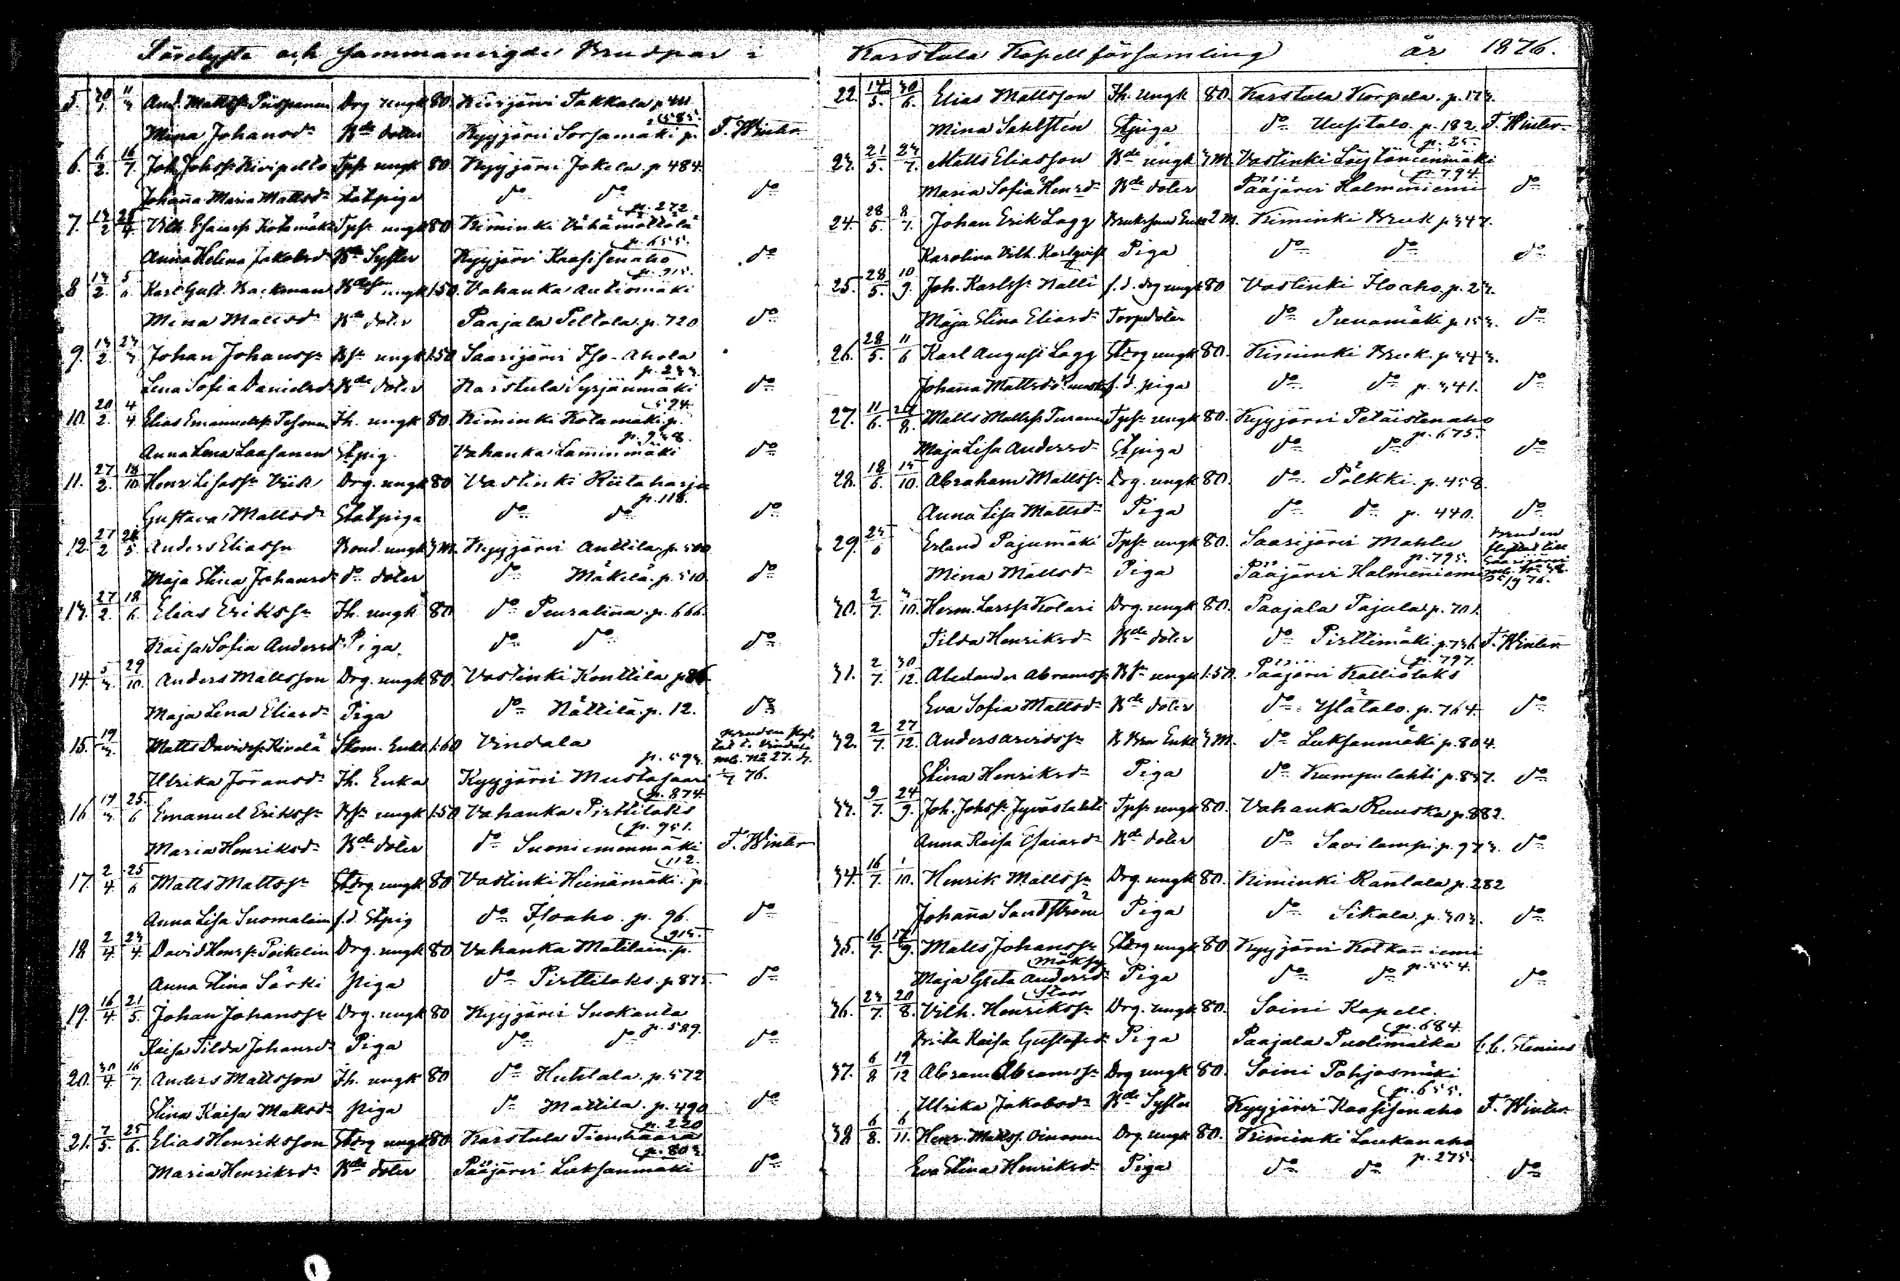 Förelyste och Sammanvigde Brudpar i
5. 30/1 11/3 And. Mattss: Piispanen Drg ungk 80 Kyyjärvi Takkala p 411
585.
Mina Johansd: Bde doter Kyyjärvi Sorsamäki p. F. Winter
6. 6/2. 16/7. Joh. Johss Kivipelto Tpss ungk 80 Kyyjärvi Jokela p 484.
Johanna Maria Mattsd: Statpiga do do do
p. 272
7. 13/2 Vilh. Esaiass Kotamäki Tpss ungk 80 Kiminki Vähämättälä
p. 655.
Anna Helena Jakobsd Bde Syster Kyyjärvi Kaasisenaho do
p. 915.
8 13/2. Karl Gust. Backman ungk 1.50. Vahanka Autiomäki
Mina Mattsd: Bde doter Paajala Peltola p. 720 do
9. 13/2 Johan Johanss: Bss ungk 1.50 Saarijärvi Iso-Ahola
p. 233.
Lena Sofia Danielsd Bde doter Karstula Syrjänmäki do
594.
10. 20/2. 4/4 Elias Emanuelss: Ih. ungk 80 Kiminki Kotamäki p.
p. 938.
Anna Lena Laasanen Stpig. Vahanka Lamminmäki do
11. 27/2. 18/10 Henr. Lisass: Viik Drg. ungk 80 Vastinki Riitaharju
p. 118.
Gustava Mattsd: Statpiga do do do
12. 27/2 28/5 Anders Eliass: Bond. ungk 3 M. Kyyjärvi Anttila p. 500
Maja Stina Johansd: do doter do Mäkelä. p. 510. do
13. 27/2 18/6 Elias Erikss: Ih. ungk 80. do Peuralinna p. 666.
Kaisa Sofia Andersd: Piga. do do do
14. 5/3. 29/10. Anders Mattsson Drg. ungk 80. Vastinki Konttila p 86.
Maja Lena Eliasd: Piga do Mattila p. 12. do
15. 19/3. Matts Davidss: Kivelä Skom. Enkl. 1.60 Vindala
p. 593.
Ulrika Göransd: Ih. Enka Kyyjärvi Mustasaari
p. 874
16 19/3 25/6 Emanuel Erikss: Bss: ungk 1.50 Vahanka Pirttilaks
p. 951.
Maria Henriksd: Bde doter do Suoniemenmäki F. Winter
112.
17. 2/4 25/6 Matts Mattss: Stdrg ungk 80 Vastinki Heinämäki p.
Anna Lisa Suomalain f. d. Stpig do Isoaho. p. 96. do
915.
18 2/4 23/4. David Henrss: Poikelin Drg. ungk 80 Vahanka Matilain p.
Anna Stina Särki Piga do Pirttilaks. p. 875. do
19. 16/4 21/5. Johan Johanss: Drg. ungk 80 Kyyjärvi Suokanta
p. 589.
Kaisa Tilda Johansd: Piga do do do
20. 30/4. 16/7 Anders Mattsson Ih. ungk 80 do Huhtala. p. 572
Stina Kaisa Mattsd: Piga do Mattila. p. 490 do
p. 220
21. 7/5. 25/6. Elias Henriksson Stdrg ungk 80. Karstula Tienhaara
p. 803.
Maria Henriksd: Bde doter Pääjärvi Luksanmäki do
Karstula Kapellförsamling år 1876.
22. 14/5. 30/6. Elias Mattsson Ih. Ungk 80. Karstula Korpela. p. 173.
Mina Sahlsten Stpiga do Uusitalo. p. 182. F. Winter
p. 25.
23. 21/5 23/7. Matts Eliasson Bde ungk 3 M. Vastinki Löytänänmäki
p. 794.
Maria Sofia Henrsd: Bde doter Pääjärvi Halmeniemi do
24. 28/5. 8/7. Johan Erik Lagg Bruksfmn Enkl 2 M. Kiminki Bruk p 347.
Karolina Vilh. Karlqvist Piga do do do
25. 28/5. 10/9. Joh. Karlss: Nälli f. d. drg ungk 80 Vastinki Isoaho p. 23.
Maja Stina Eliasd: Torpdoter do Punamäki p. 153. do
26. 28/5. 11/6 Karl August Lagg Stdrg ungk 80. Kiminki Bruk p. 343.
Johanna Mattsd: f. d. piga do do p. 341. do
27. 11/6. Matts Mattss: Turanen Tpss ungk 80. Kyyjärvi Petäistenaho
p. 675.
Maja Lisa Andersd: Stpiga do do do
28. 18/6 15/10. Abraham Mattss: Drg. ungk 80. do Pölkki p. 458.
Anna Lisa Mattsd: Piga do do p. 440. do
29. 25/6 Erland Pajumäki Tpss ungk 80. Saarijärvi Mahlu
p. 795.
Mina Mattsd: Piga Pääjärvi Halmeniemi
30. 2/7. 3/10. Herm. Larss: Kolari Drg. ungk 80. Paajala Pajula p. 701.
Tilda Henriksd: Bde doter do Pirttimäki p. 736 F. Winter
p. 797.
31. 2/7. 30/12. Alexander Abramss: Bss: ungk 1.50. Pääjärvi Kalliolaks
Eva Sofia Mattsd: Bde doter do Ylätalo. p. 764. do
32. 2/7. 27/12. Anders Arvidss: Enkl 3 M. do Luksanmäki p. 804.
Stina Henriksd: Piga do Kumpulahti p. 837. do
33. 9/7. 24/9. Joh. Johss: Jyväslahti Tpss ungk 80. Vahanka Ruuska p. 882.
Anna Kaisa Esaiasd: Bde doter do Savilampi p. 973. do
34. 16/7. 1/10. Henrik Mattss: Drg. ungk 80. Kiminki Rantala p. 282
Johanna Sandström Piga do Sikala. p. 303. do
35. 16/7. 17/9. Matts Johanss: Stdrg ungk 80 Kyyjärvi Kotkanniemi
p. 554.
Maja Greta Andersd: Piga do do do
36. 23/7. 20/8. Vilh. Henrikss: Drg. ungk 80. Soini Kapell.
p. 684.
Brita Kaisa Gustafsd: Piga Paajala Puolimatka C. C. Stenius
37. 6/8 19/12 Abram Abramss: Drg ungk 80. Soini Pohjosmäki
p. 655.
Ulrika Jakobsd: Bde Syster Kyyjärvi Kaasisenaho F. Winter
38 6/8. 6/11. Henr. Mattss. Oinonen Drg. ungk 80. Kiminki Laukanaho
p. 275.
Eva Stina Henriksd: Piga do do do